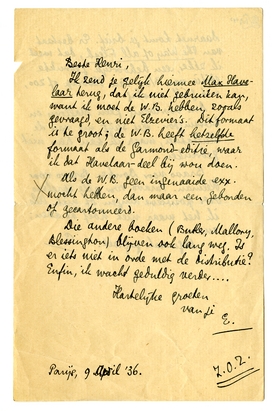 Beste Henri,
Ik zend je gelijk hiermee Max Have-
laar terug, dat ik niet gebruiken kan,
want ik moet de W.B. hebben, zoals
gevraagd, en niet Elsevier's. Dit formaat
is te groot; de W.B. heeft hetzelfde
formaat als de Garmond-editie, waar
ik dat Havelaar-deel bij wou doen.
Als de W.B. geen ingenaaide exx.
mocht hebben, dan maar een gebonden
of gecartonneerd.
Die andere boeken (Butler, Mallory,
Blessington) blijven ook lang weg. Is
er iets niet in orde met de distributie?
Enfin, ik wacht geduldig verder....
Hartelijke groeten
van je
E.
Parijs, 9 April '36.